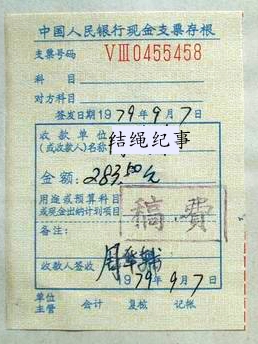 中国人民银行现金支票存根
支票号码 VIII0455458
科目
对方科目
签发日期1979年9月7日
收款单位
(或收款人)名称 结绳纪事
金额: 283.50元
用途或预算科目
或现金出纳计划项目
稿费
备注:
收款人签收
1979年9月7日
单位
主管 会计 复核 记帐